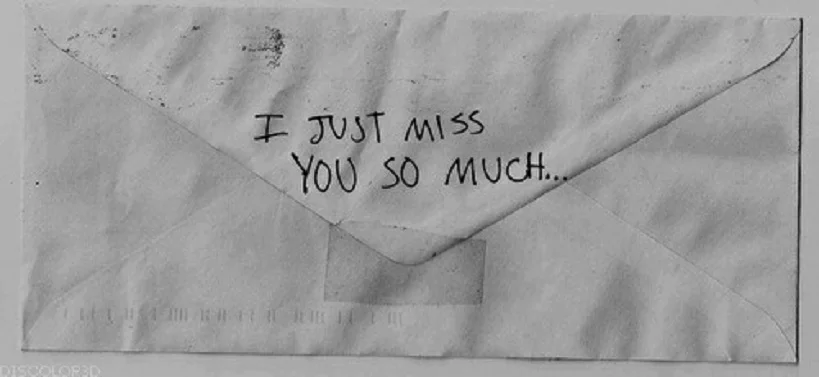 I JUST MISS
YOU SO MUCH...
DISCOLOR3D